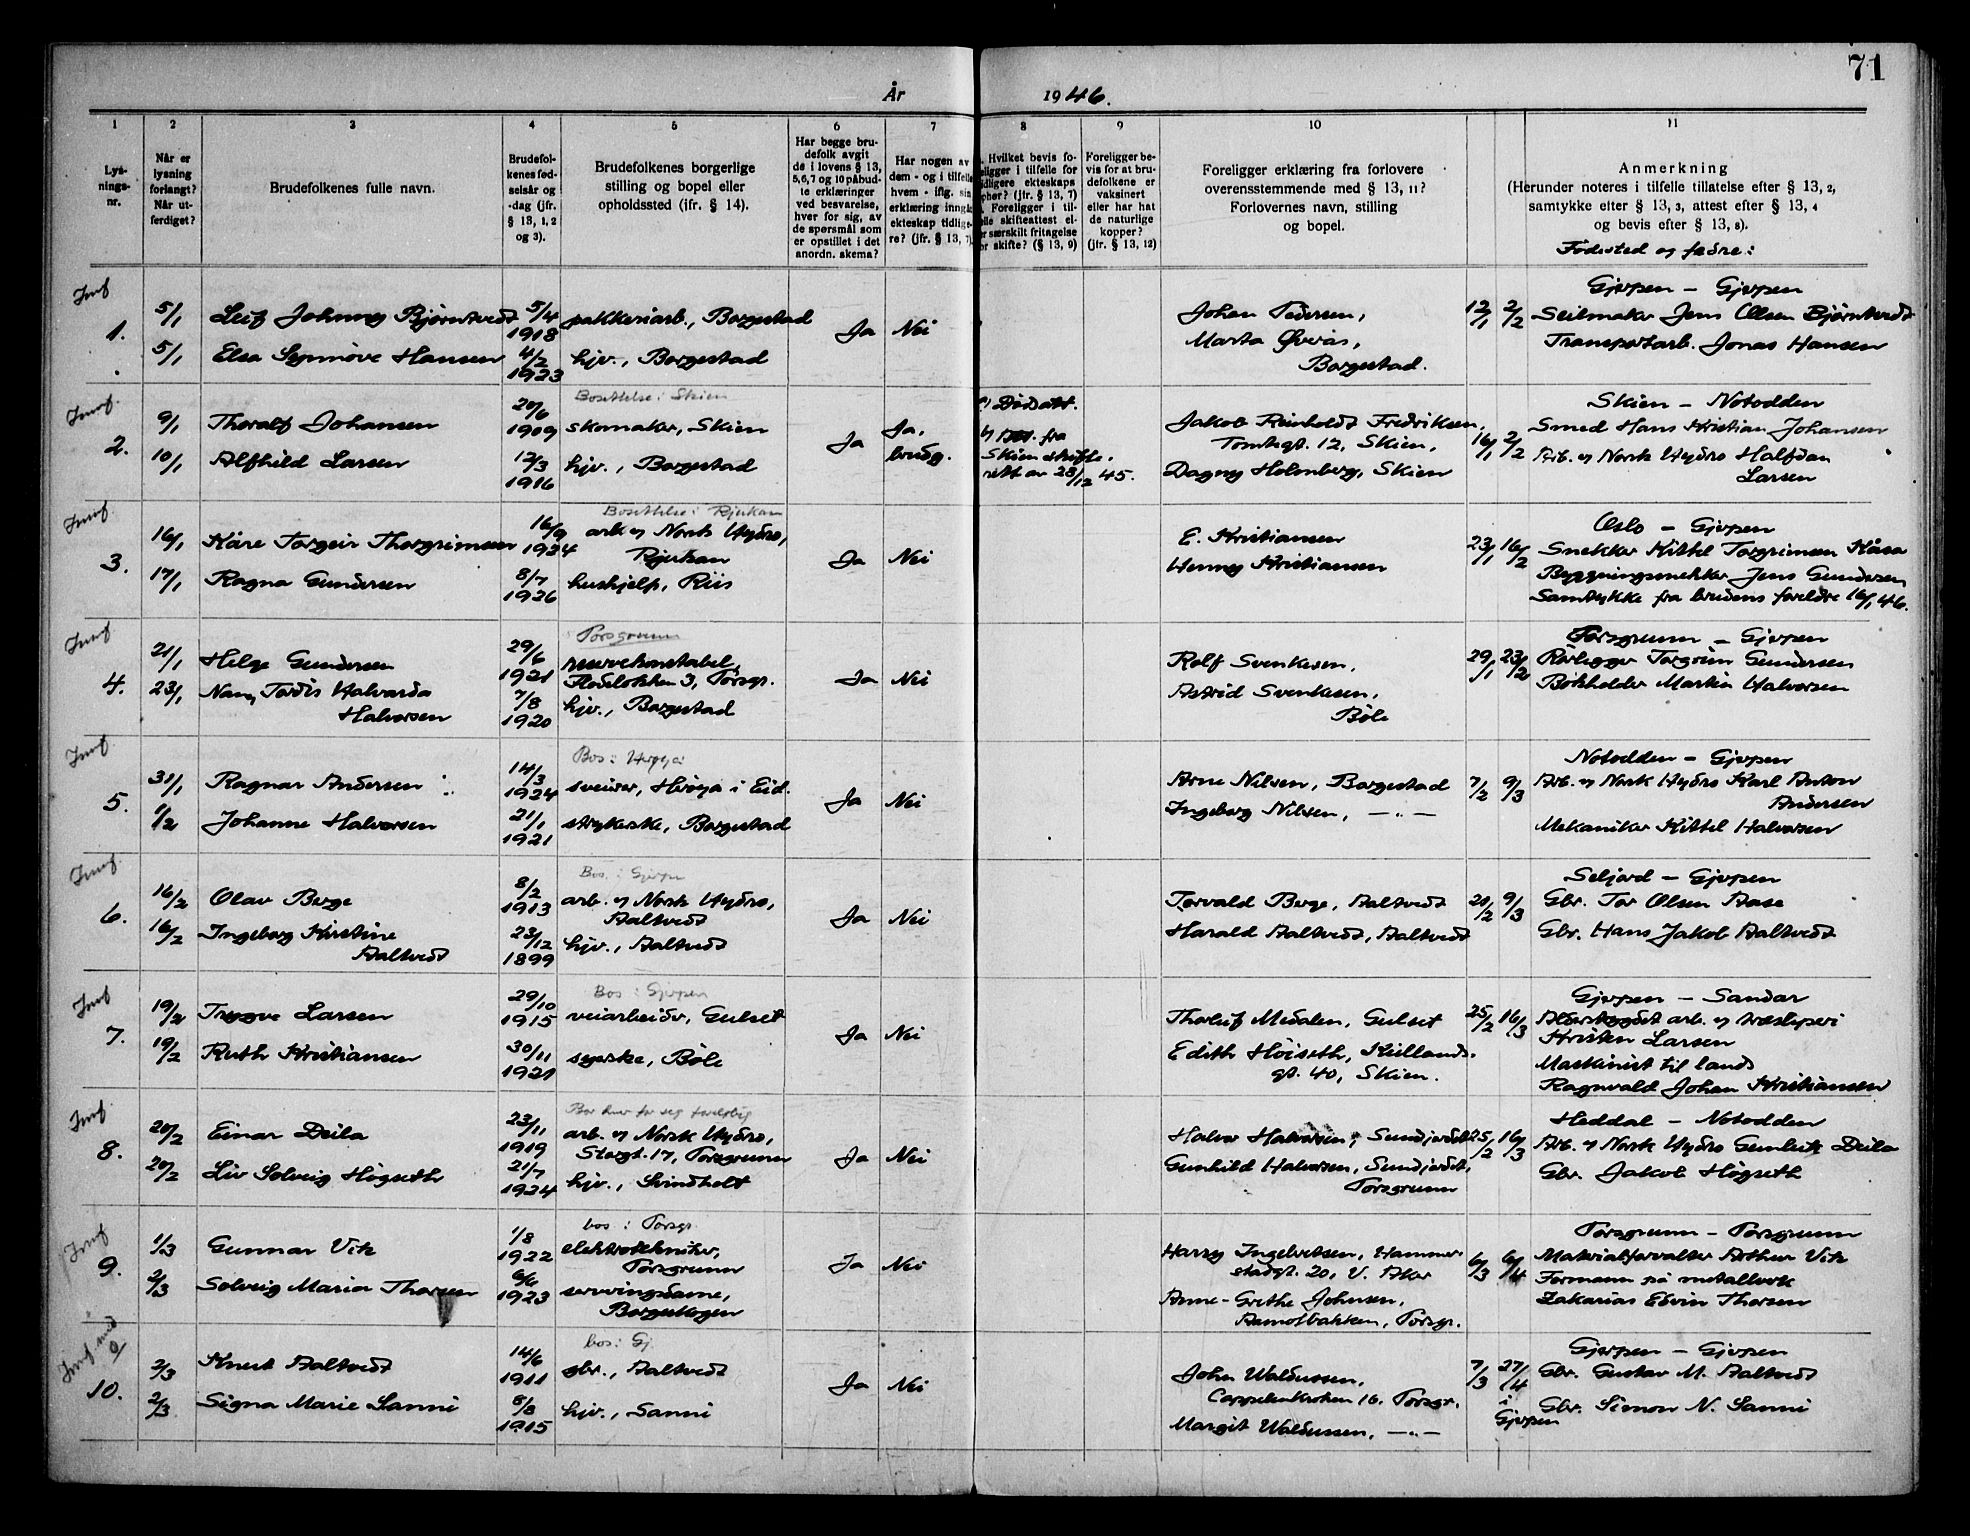 71
År 1946.
1 2 3 4 5 6 7 8 9 10 11
Lys-
nings-
nr.
Når er
lysning
forlangt?
Når ut-
ferdiget?
Brudefolkenes fulle navn.
Brudefol-
kenes fød-
selsår og
-dag (jfr.
§ 13, 1, 2
og 3).
Brudefolkenes borgerlige
stilling og bopel eller
opholdssted (jfr. § 14).
Har begge bru-
defolk avgit
de i lovens § 13,
5,6,7 og 10 påbud-
te erklæringer
ved besvarelse,
hver for sig, av
de spørsmål som
er opstillet i det
anordn. skema?
Har nogen av
dem - og i tilfelle
hvem - iflg. sin
erklæring inngåt
ekteskap tidlige-
re? (jfr. § 13, 7)
Hvilket bevis fo-
religger i tilfelle for
tidligere ekteskaps
opher? (jfr. § 13, 7)
Foreligger i til-
felle skifteattest el-
ler særskilt fritagelse
for skifte? (§ 13, 9)
Foreligger be-
vis for at bru-
defolkene er
vaksinert
eller har hat
de naturlige
kopper?
(jfr. § 13, 12)
Foreligger erklæring fra forlovere
overensstemmende med § 13, 11?
Forlovernes navn, stilling
og bopel.
Anmerkning
(Herunder noteres i tilfelle tillatelse efter § 13, 2,
samtykke efter § 13, 3, attest efter § 13, 4
og bevis efter § 13, 8).
Fødested og fedre:
1.
5/1 Leif Johnny Bjørntvedt 5/4 1918 pakkeriarb., Borgestad
5/1 Elsa Synnøve Hansen 4/2 1923 hjv., Borgestad
Ja Nei
Johan Pedersen,
Marta Øverås,
Borgestad.
12/1 2/2
Gjerpen - Gjerpen
Seilmaker Jens Olsen Bjørntvedt
Transportarb. Jonas Hansen
2.
Bosettelse: Skien
9/1 Thoralf Johansen 20/6 1909 skomaker, Skien
10/1 Alfhild Larsen 12/3 1916 hjv., Borgestad
Ja Ja, brudg.
Dødsatt.
fra
Skien skifte-
rett av 28/12 45.
Jakob Reinholdt Fredriksen,
Tomtegt. 12, Skien,
Dagny Holmberg, Skien
16/1 2/2
Skien - Notodden
Smed Hans Kristian Johansen
Arb. v Norsk Hydro Halfdan
Larsen
3.
Bosettelse: Rjukan
16/1 Kåre Torgeir Thorgrimsen 16/9 1924 arb. v Norsk Hydro,
Rjukan
17/1 Ragna Gundersen 8/7 1926 hushjelp, Riis
Ja Nei
E. Kristiansen
Henny Kristiansen
23/1 16/2
Oslo - Gjerpen
Snekker Kittel Torgrimsen Kåsa
Bygningssnekker Jens Gundersen
Samtykke fra brudens foreldre 16/1 46.
4.
Porsgrunn
21/1 Helge Gundersen 29/6 1921 reservekonstabel,
Flodeløkken 3, Porsgr.
23/1 Nanny Tordis Halvarda
Halvorsen 7/8 1920 hjv., Borgestad
Ja Nei
Rolf Svenkesen,
Astrid Svenkesen,
Bøle
29/1 23/2
Porsgrunn - Gjerpen
Rørlegger Torgrim Gundersen
Bokholder Martin Halvorsen
5.
Bos: Herøya
31/1 Ragnar Andersen 14/3 1924 sveiser, Herøya i Eid.
1/2 Johanne Halvorsen 21/1 1921 strykerske, Borgestad
Ja Nei
Arne Nilsen, Borgestad
Ingeborg Nilsen, -"-
7/2 9/3
Notodden - Gjerpen
Arb. v Norsk Hydro Karl Anton
Andersen
Mekaniker Kittel Halvorsen
6.
Bos: Gjerpen
16/2 Olav Berge 8/2 1913 arb. v Norsk Hydro,
Aaltvedt
16/2 Ingeborg Kirstine
Aaltvedt 23/12 1899 hjv., Aaltvedt
Ja Nei
Torvald Berge, Aaltvedt
Harald Aaltvedt, Aaltvedt
20/2 9/3
Seljord - Gjerpen
Gbr. Tor Olsen Aase
Gbr. Hans Jakob Aaltvedt
7.
Bos: Gjerpen
19/2 Trygve Larsen 29/10 1915 veiarbeider, Gulset
19/2 Ruth Kristiansen 30/11 1921 syerske, Bøle
Ja Nei
Thorleif Medalen, Gulset
Edith Höiseth, Kiellands-
gt. 40, Skien.
25/2 16/3
Gjerpen - Sandar
arb. v tresliperi
Kristen Larsen
Maskinist til lands
Ragnvald Johan Kristiansen
8.
Bor hver for seg foreløbig
20/2 Einar Deila 23/11 1919 arb. v Norsk Hydro,
Storgt. 17, Porsgrunn
20/2 Liv Solveig Högseth 21/7 1924 hjv., Svindholt
Ja Nei
Halvor Halvorsen, Sundjordet
Gunhild Halvorsen, Sundjordet,
Porsgrunn
25/2 16/3
Heddal - Notodden
Arb. v Norsk Hydro Gunleik Deila
Gbr. Jakob Högseth
9.
bos: Porsgr.
1/3 Gunnar Vik 1/8 1922 elektrotekniker,
Porsgrunn
2/3 Solveig Maria Thorsen 6/6 1923 serveringsdame,
Borgeskogen
Ja Nei
Harry Ingebretsen, Hammer-
stadgt. 20, V. Aker
Anne-Grethe Johnsen,
Aamotbakken, Porsgr.
6/3 6/4
Porsgrunn - Porsgrunn
Materialforvalter Arthur Vik
Formann på metallverk
Zakarias Edvin Thorsen
10.
bos: Gj.
2/3 Knut Aaltvedt 14/6 1911 gbr., Aaltvedt
2/3 Signe Marie Sanni 8/8 1915 hjv., Sanni
Ja Nei
John Waldussen,
Cappelenkroken 16. Porsgr.
Margit Waldussen, -"-
7/3 27/4
i
Gjerpen
Gjerpen - Gjerpen
Gbr. Gustav M. Aaltvedt
Gbr. Simon N. Sanni